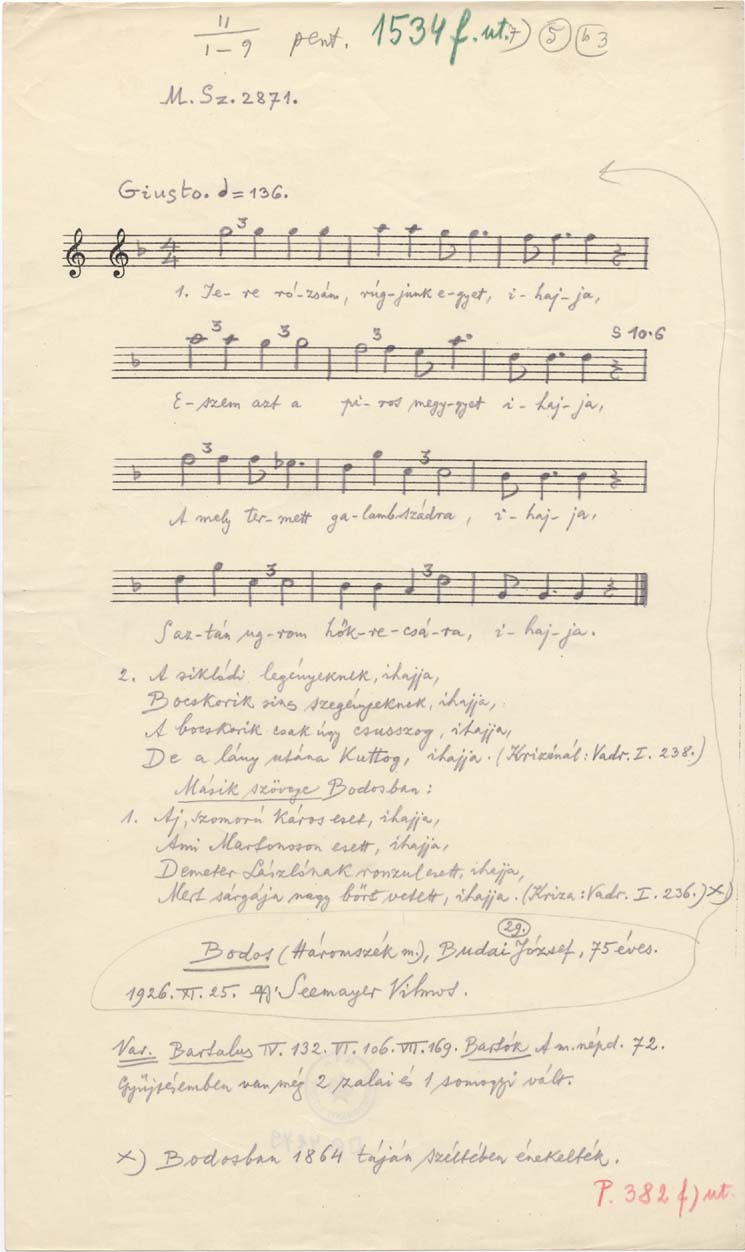 II
1-9 pent. 1534 f. ut. 7) 5 b3
M. Sz. 2871.
Giusto. d = 136.
3
1. Te- re ró-zsám, rúg-junk e-gyet, i-haj-ja,
3 3 3 S 10.6
E-szem azt a pi-ros megy-gyet i-haj-ja,
3 3
A mely ter-mett ga-lamb-szádra, i-haj-ja,
3 3
S az-tán ug-rom hők-re-csá-ra, i-haj-ja.
2. A siklódi legényeknek, ihajja,
Bocskorik sincs szegényeknek, ihajja,
A bocskorik csak úgy csusszog, ihajja,
De a lány utána kuttog, ihajja. (Krizánál: Vadr. I. 238.)
Másik szövege Bodosban:
1. Aj, szomorú káros eset, ihajja,
Ami Martonoson esett, ihajja,
Demeter Lászlónak ronzul esett, ihajja,
Mert sárgája nagy bőrt vetett, ihajja. (Kriza: Vadr. I. 236.) x)
29.
Bodos (Háromszék m.), Budai József, 75 éves.
1926. XI. 25. gy. Seemayer Vilmos.
Var. Bartalus IV. 132. VI. 106. VII. 169. Bartók A m. népd. 72.
Gyűjtésemben van még 2 zalai és 1 somogyi vált.
x) Bodosban 1864 táján széltében énekelték.
P. 382 f) ut.